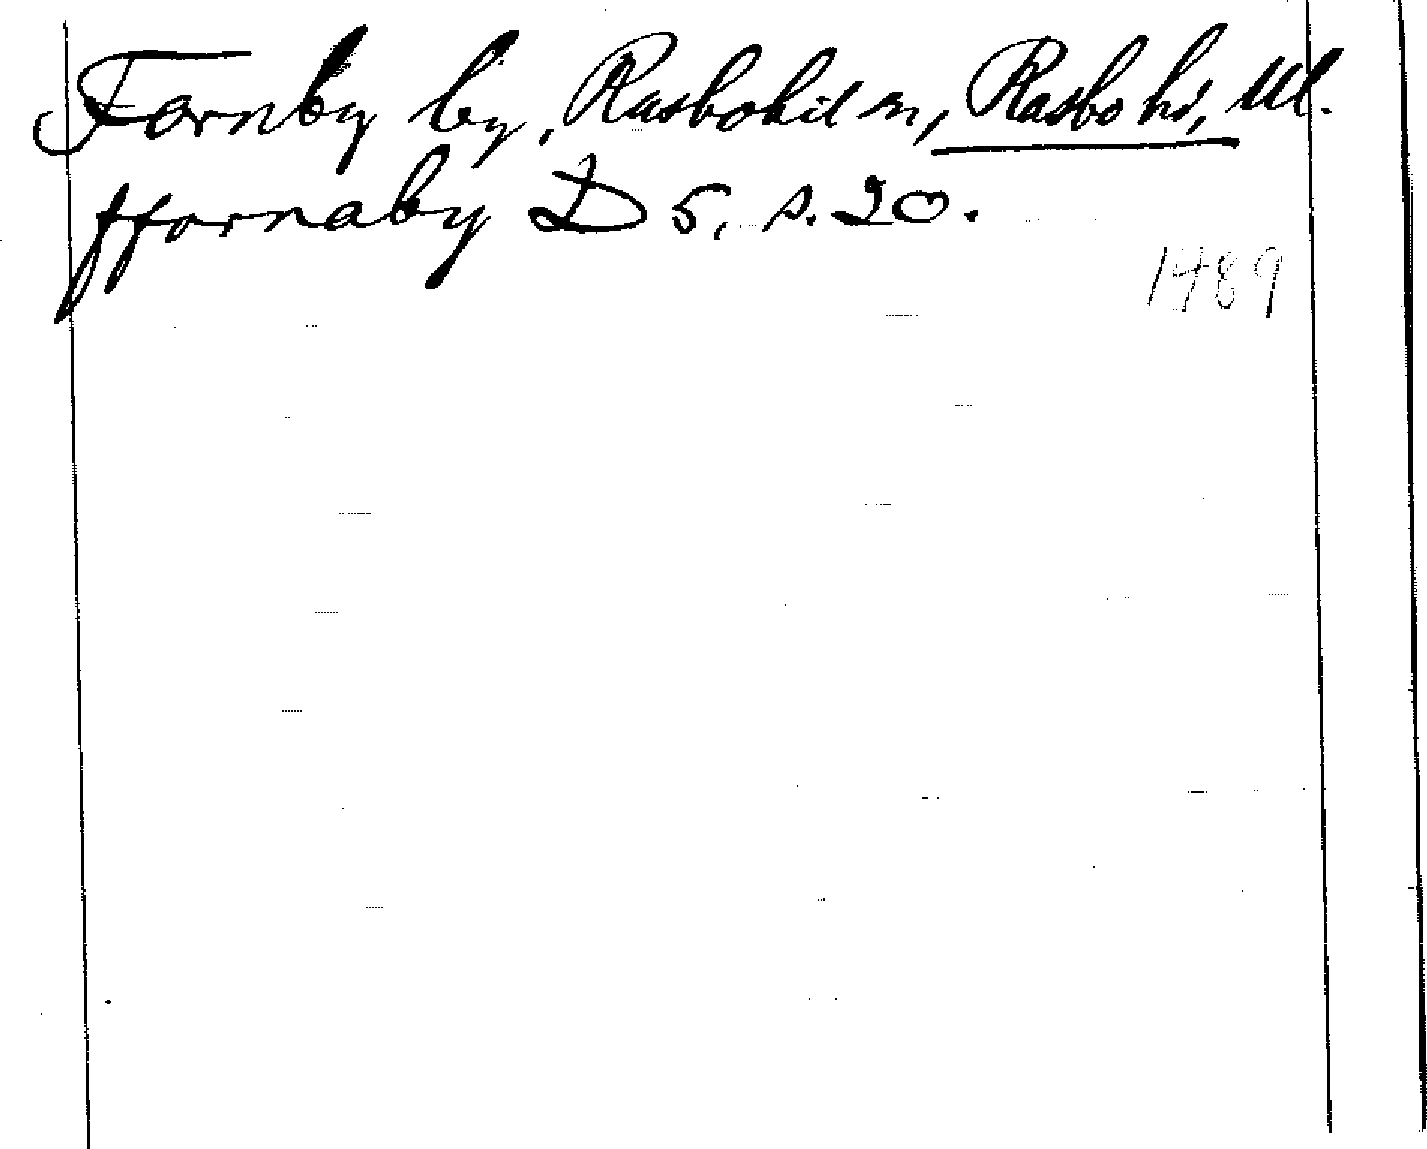 Fornby by, Rasbokil sn, Rasbo hd, Ul.
ffornaby D 5, s. 20.
1489